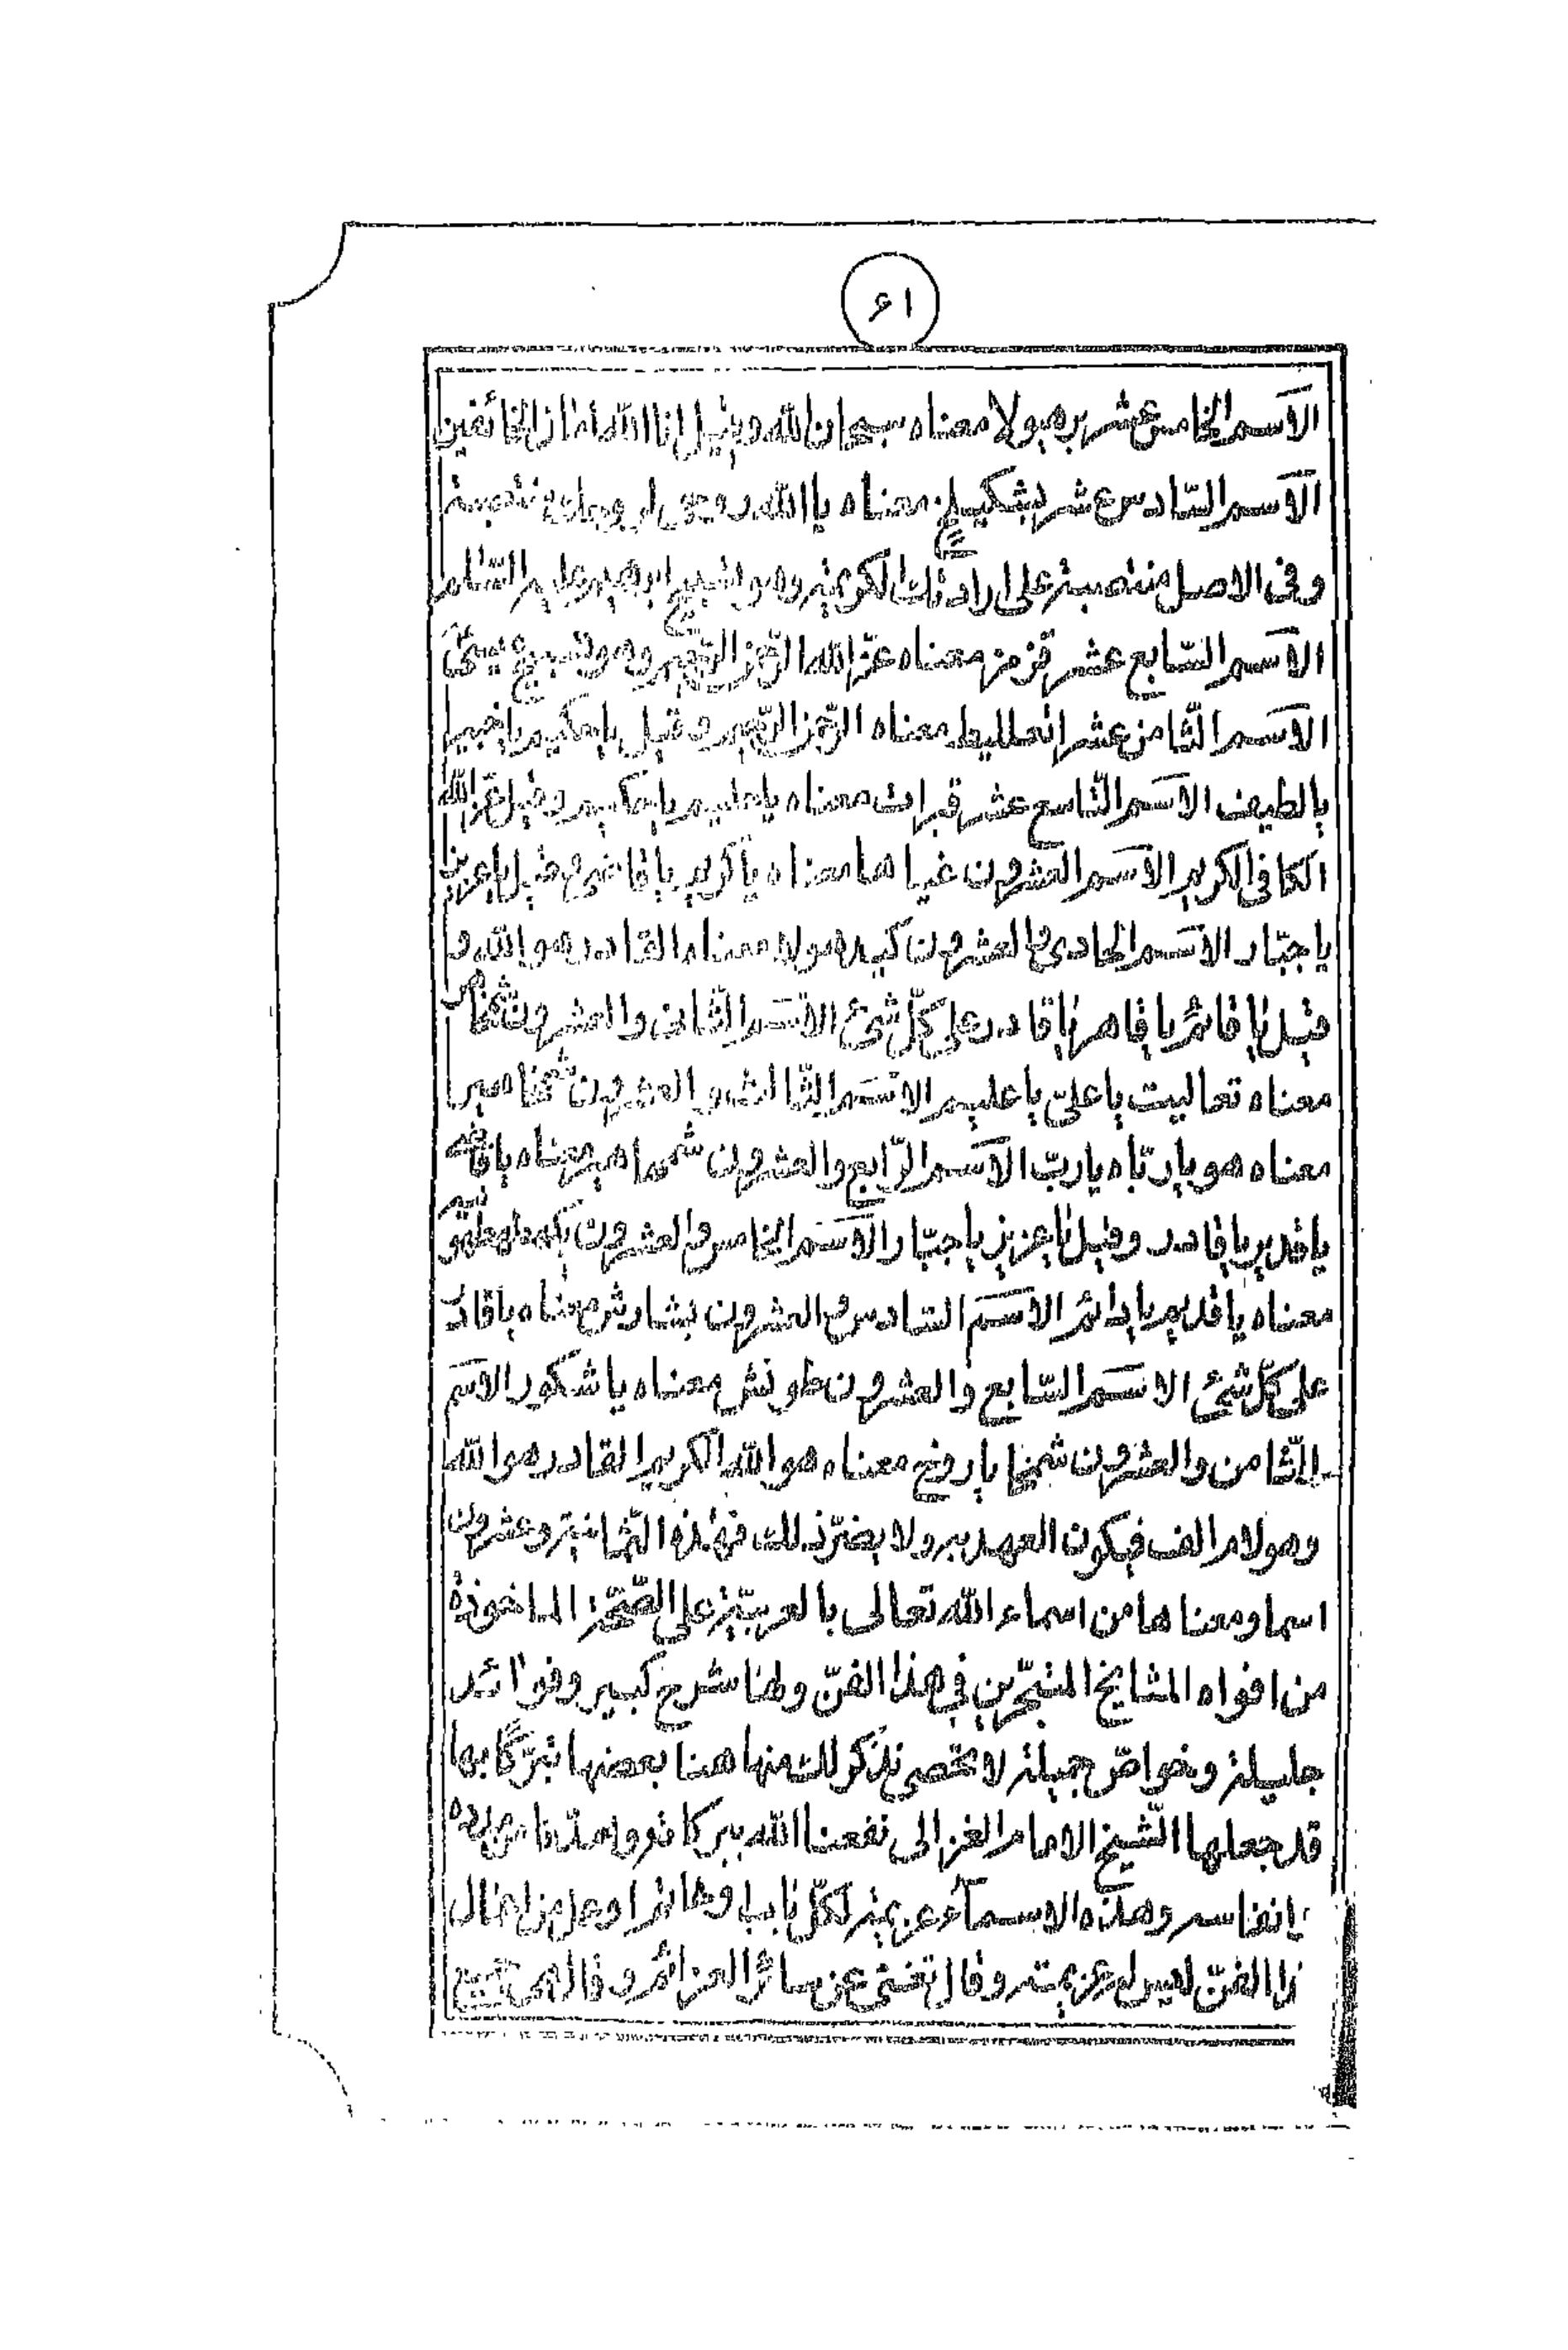 ۶۱
الاسم الخامس عشر برهيولا معناه سبحان الله وقيل انا الله امان الخائفين
الاسم السادس عشر بشكيلخ معناه يا الله
وفى الاصل منتصبة على وهو تسبيح ابرهيم عليه السلام
الاسم السابع عشر قزمز معناه عز الله الرحمن الرحيم وهو تسبيح عيسى
الاسم الثامن عشر انغلليط معناه الرحمن الرحيم وقيل يا حكيم يا خبير
يا لطيف الاسم التاسع عشر قبرات معناه يا حليم يا حكيم وقيل عز الله
الكافى الكريم الاسم العشرون غياها معناه يا كريم وقيل يا عزيز
يا جبار الاسم الحادى والعشرون كيدهولا معناه القادر هو الله و
قيل يا قائم يا قاهر يا قادر على كل شئ الاسم الثانى والعشرون
معناه تعاليت يا على يا عليم الاسم الثالث والعشرون شمخاهير
معناه هو يا رباه يا رب الاسم الرابع والعشرون شمهاهير معناه
يا قدير يا قادر وقيل يا عزيز يا جبار الاسم الخامس والعشرون
معناه يا قديم يا دائم الاسم السادس والعشرون بشارش معناه يا قادر
على كل شئ الاسم السابع والعشرون طونش معناه يا شكور الاسم
الثامن والعشرون شمخا باروخ معناه هو الله الكريم القادر هو الله
وهو لام الف فيكون العهد به ولا يضر ذلك فهذه الثمانية وعشرون
اسما ومعناها من اسماء الله تعالى بالعربية على الصحة الماخوذة
من افواه المشايخ المتبحرين فى هذا الفن ولها شرح كبير وفوائد
جليلة وخواص جميلة لا تحصى نذكر لك منها هنا بعضها تبركا بها
قد جعلها الشيخ الامام الغزالى نفعنا الله ببركاته وامدنا من مدده
انفاسه وهذه الاسماء عزيمة لكل باب
ذا الفن ليس له عزيمته وقال تغنى عن سائر العزائم وقال هى